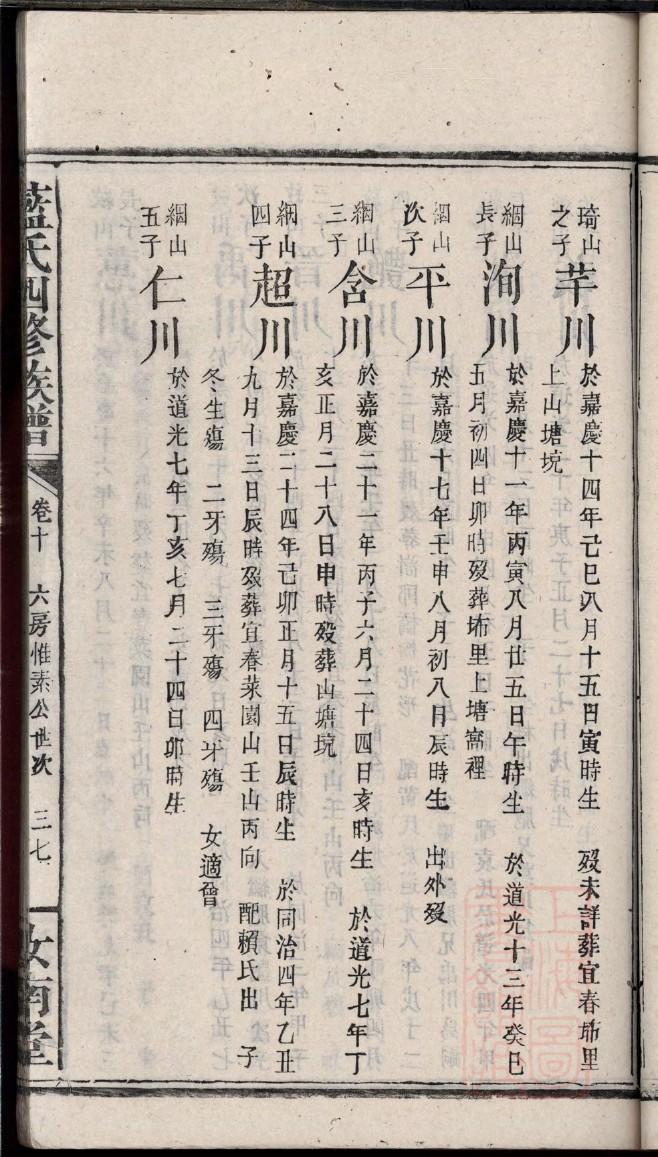 琦山之子
芊川
於嘉慶十四年己巳八月十五日寅時生 歿未詳葬宜春埗里
上山塘垸
絪山長子
洵川
於嘉慶十一年丙寅八月廿五日午時生 於道光十三年癸巳
五月初四日卯時歿葬埗里上塘窩裡
絪山次子
平川
於嘉慶十七年壬申八月初八日辰時生 出外歿
絪山三子
含川
於嘉慶二十一年丙子六月二十四日亥時生 於道光七年丁
亥正月二十八日申時歿葬山塘垸
絪山四子
超川
於嘉慶二十四年己卯正月十五日辰時生 於同治四年乙丑
九月十三日辰時歿葬宜春菜園山壬山丙向 配賴氏出 子
冬生殤 二牙殤 三牙殤 四牙殤 女適曾
絪山五子
仁川
於道光七年丁亥七月二十四日卯時生
藍氏四修族譜 卷十 六房惟素公世次 三七 汝南堂